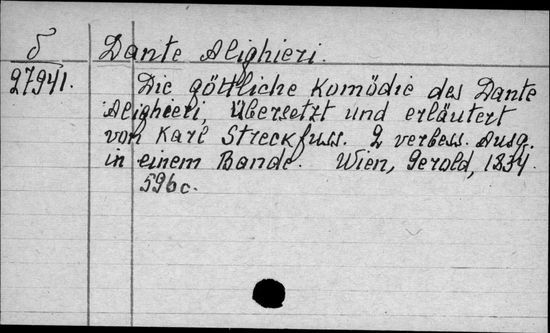 δ Dante Alighieri.
27941. Die göttliche Komödie des Dante
Alighieri, übersetzt und erläutert
von Karl Streckfuss. 2 verbess. Ausg.
in einem Bande. Wien, Gerold, 1834.
596 c.